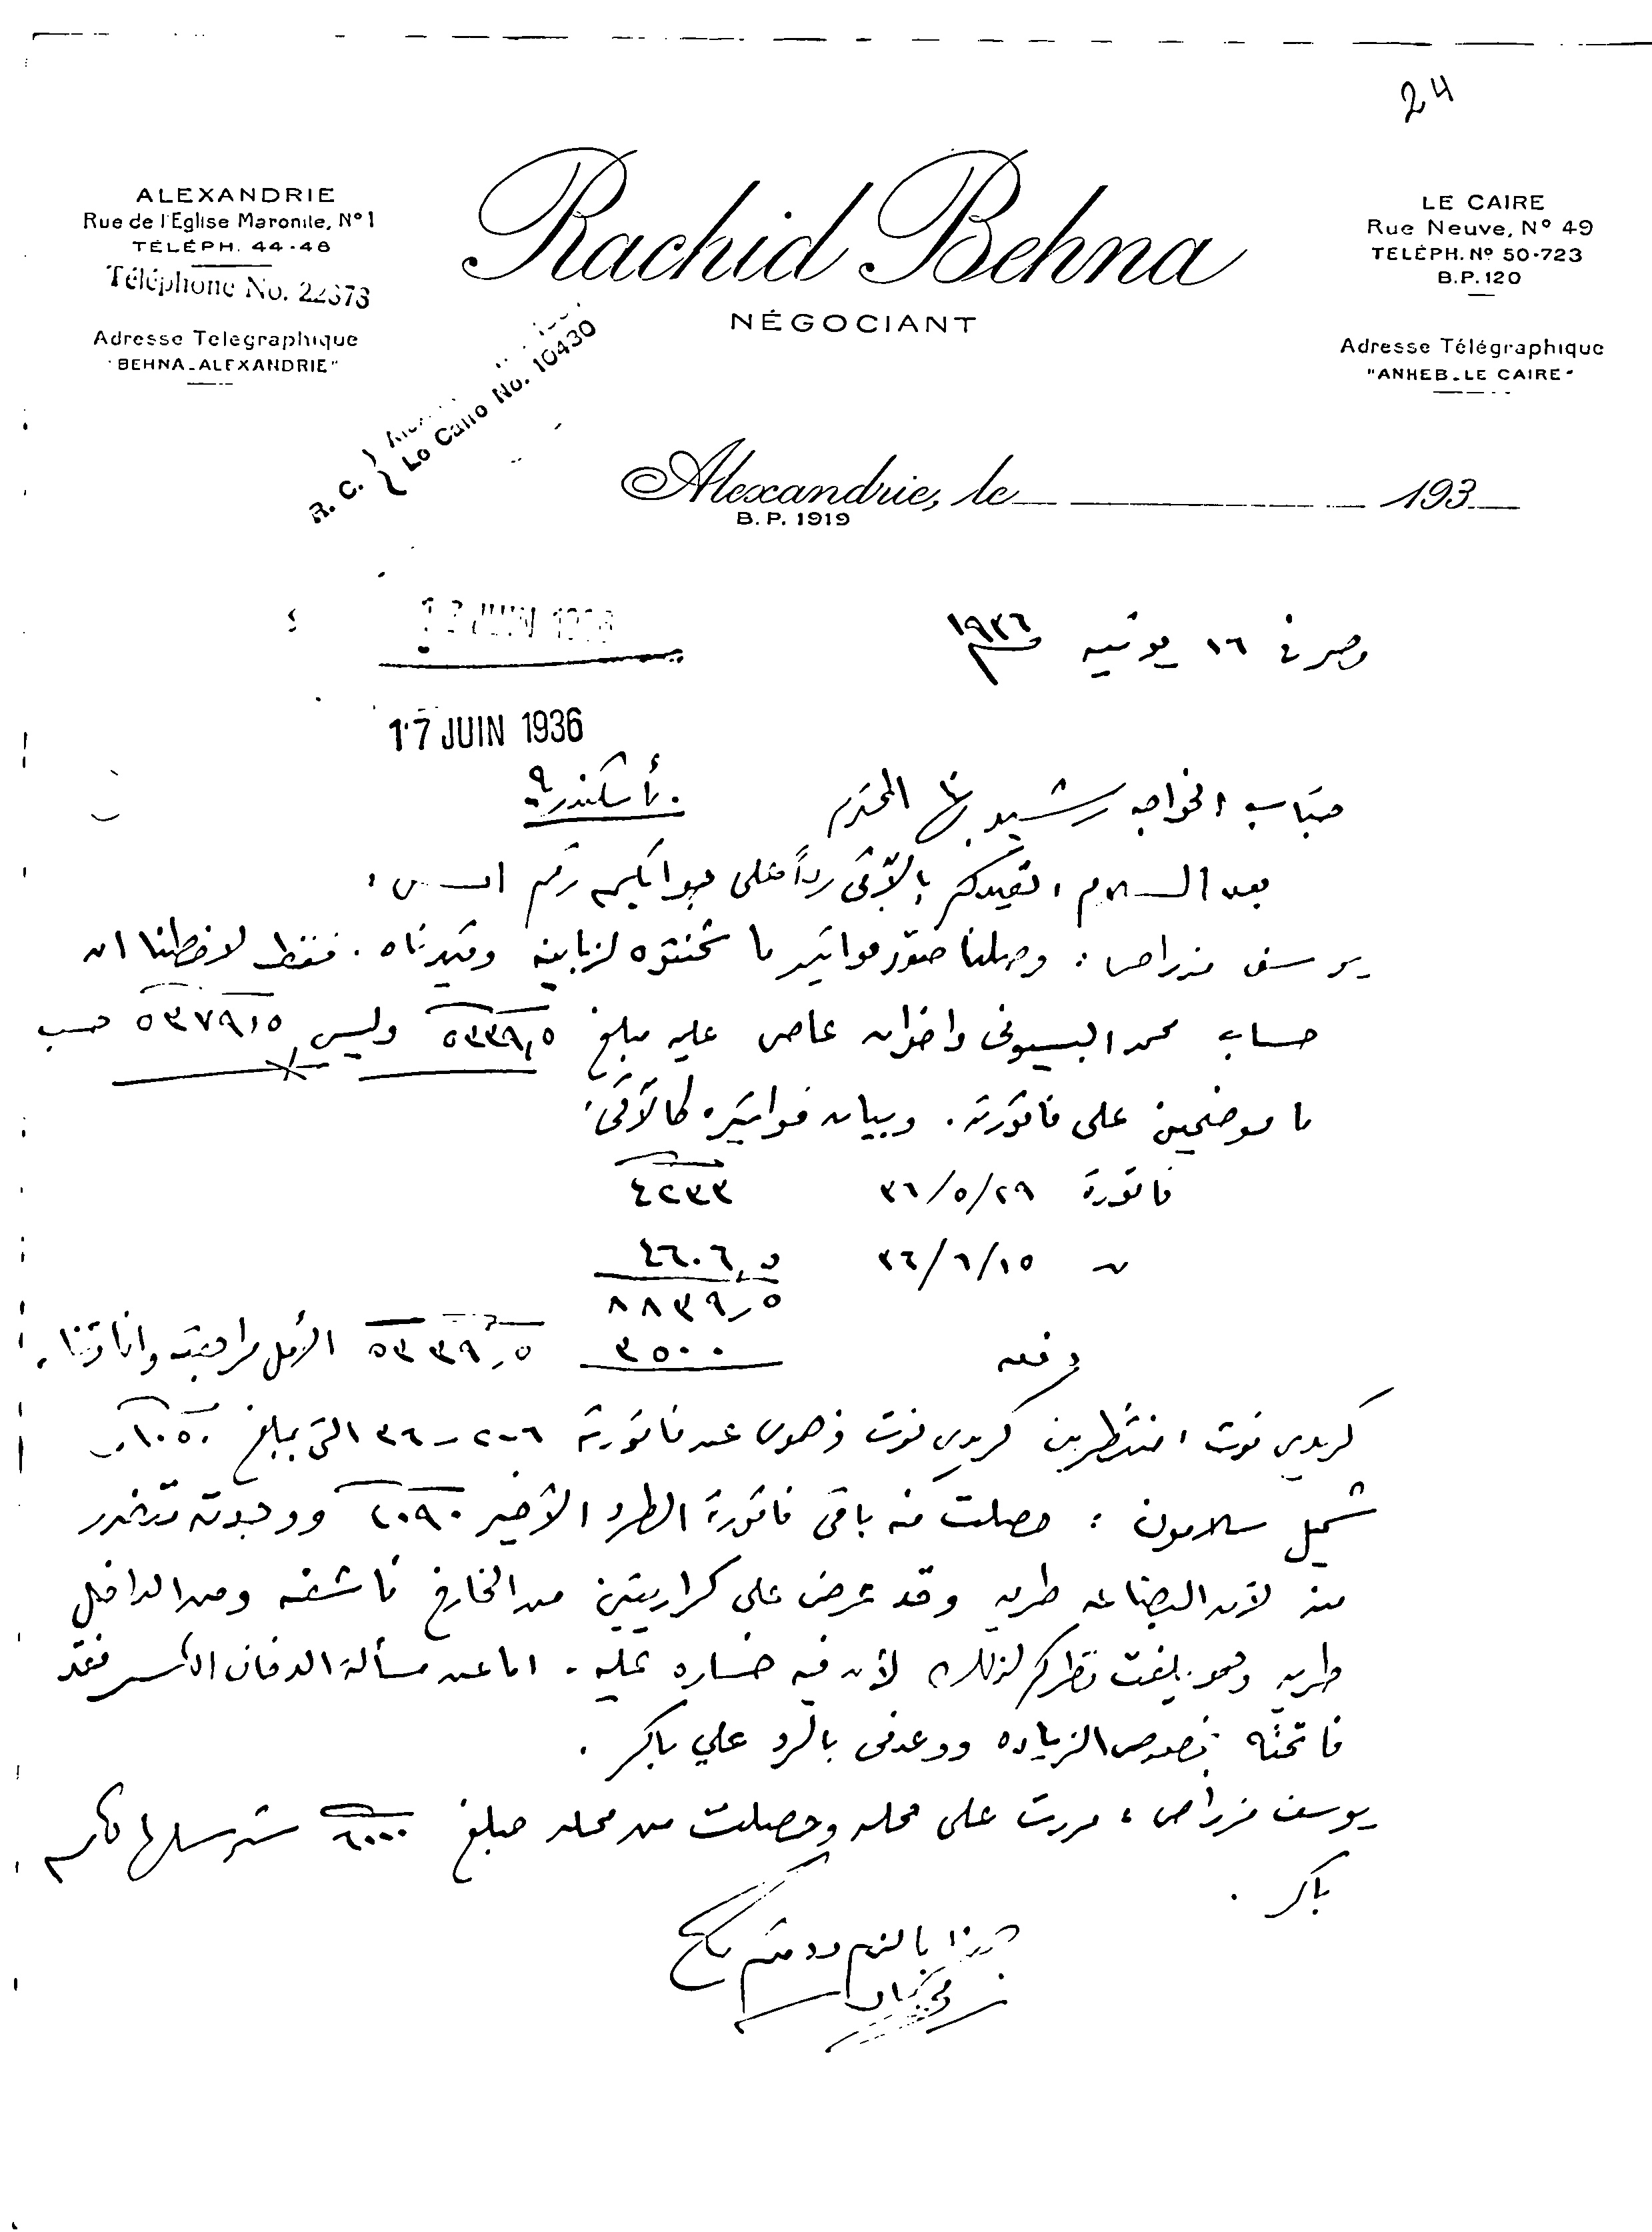 24
ALEXANDRIE
Rue de l'Eglise Maronite, Nº 1
TÉLÉPH. 44-46
Téléphone No. 22673
Adresse Telegraphique
"BEHNA-ALEXANDRIE"
Rachid Behna
NÉGOCIANT
LE CAIRE
Rue Neuve, Nº 49
TELÉPH. Nº 50-723
B.P. 120
Adresse Télégraphique
"ANHEB-LE CAIRE"
R. C. Le Caire No. 10430
Alexandrie, le 193
B. P. 1919
JUIN
مصر في ١٦ يونيه ١٩٣٦
17 JUIN 1936
جناب الخواجه رشيد بهنا المحترم باسكندرية
بعد السلام، نفيدكم بالآتى رداً على جوابكم رقم امس:
يوسف مزراحى: وصلنا صور فواتير ما شحنتوه لزباينه وقيدناه. فقط لاحظنا ان
حساب محمد البسيونى واخوان خاص عليه مبلغ ٥٣٣٩,٥ وليس ٥٣٧٩,٥ حسب
ما موضحين على فاتورته. وبيان فواتيره كالآتى:
فاتورة ٣٦/٥/٢٩ ٤٢٣٣
" ٣٦/٦/١٥ ٤٦٠٦,٥
٨٨٣٩,٥
دفعه ٣٥٠٠ ٥٣٣٩,٥ الأمل مراجعته وافادتنا.
كريدى نوت: منتظرين كريدى نوت عن فاتورة ٦-٢-٣٦ التى بمبلغ
شميل سلامون: حصلت منه باقى فاتورة الطرد الأخير ٢٠٩٠ ووجدته متضرر
منه لأن البضاعه طريه وقد عرض على من الخارج ناشفه ومن الداخل
طريه وهو يلفت نظركم لذلك لأن فيه خساره عليه. اما عن مسألة فقد
فاتحته بخصوص الزياده ووعدنى بالرد علي باكر.
يوسف مزراحى: مررت على محله وحصلت من محله مبلغ ٦٠٠٠ سنرسلها لكم
باكر.